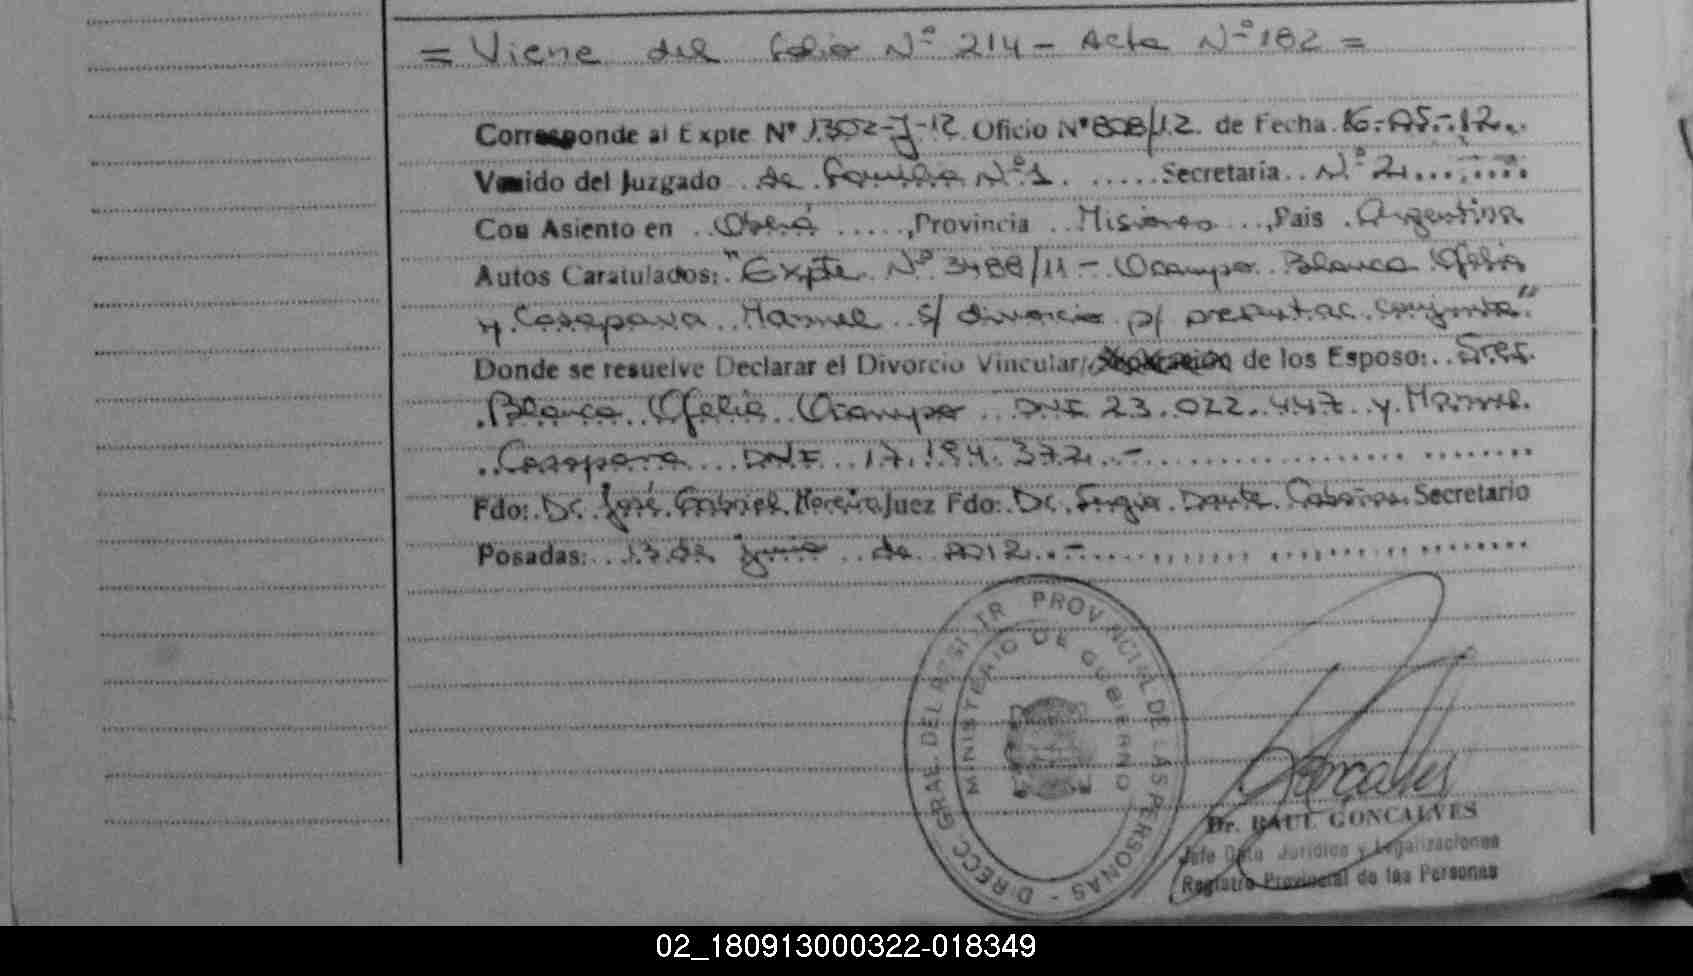 = Viene del folio Nº 214 - Acta Nº 182 =
Corresponde al Expte Nº 1302-J-12 Oficio Nº 808/12 de Fecha 16-05-12
Venido del Juzgado de Familia Nº 1 Secretaria Nº 2
Con Asiento en Oberá, Provincia Misiones, Pais Argentina
Autos Caratulados: "Expte Nº 3488/11 - Ocampo Blanca Ofelia
y Casapava Manuel s/ divorcio p/ presentac. conjunta"
Donde se resuelve Declarar el Divorcio Vincular/ de los Esposo: Sres.
Blanca Ofelia Ocampo DNI 23.022.447 y Manuel
Casapava DNI 17.194.372.-
Fdo: Dr. José Gabriel Moreira Juez Fdo: Dr. Sergio Dante Cabañas Secretario
Posadas: 13 de junio de 2012.-
DIRECC. GRAL. DEL REGISTR PROVINCIAL DE LAS PERSONAS -
MINISTERIO DE GOBIERNO
Goncalves
Dr. RAUL GONCALVES
Jefe Dpto Jurídico y Legalizaciones
Registro Provincial de las Personas
02_180913000322-018349